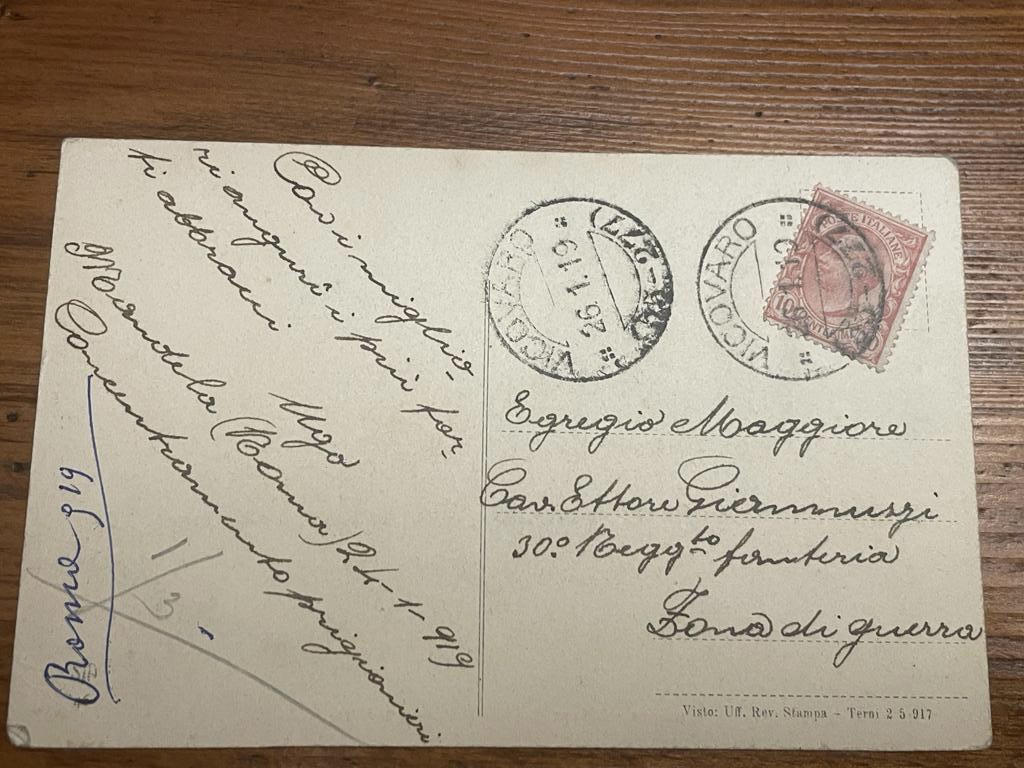 Coi miglio-
ri auguri i più for-
ti abbracci
Ugo
Mandela (Roma) 24-1-919
Concentramento prigionieri
Roma 919
1/3
VICOVARO
26.1.19
(277)
VICOVARO
(277)
POSTE ITALIANE
10
Egregio Maggiore
Cav. Ettore Giannuzzi
30º Regg.to fanteria
Zona di guerra
Visto: Uff. Rev. Stampa - Terni 2 5 917